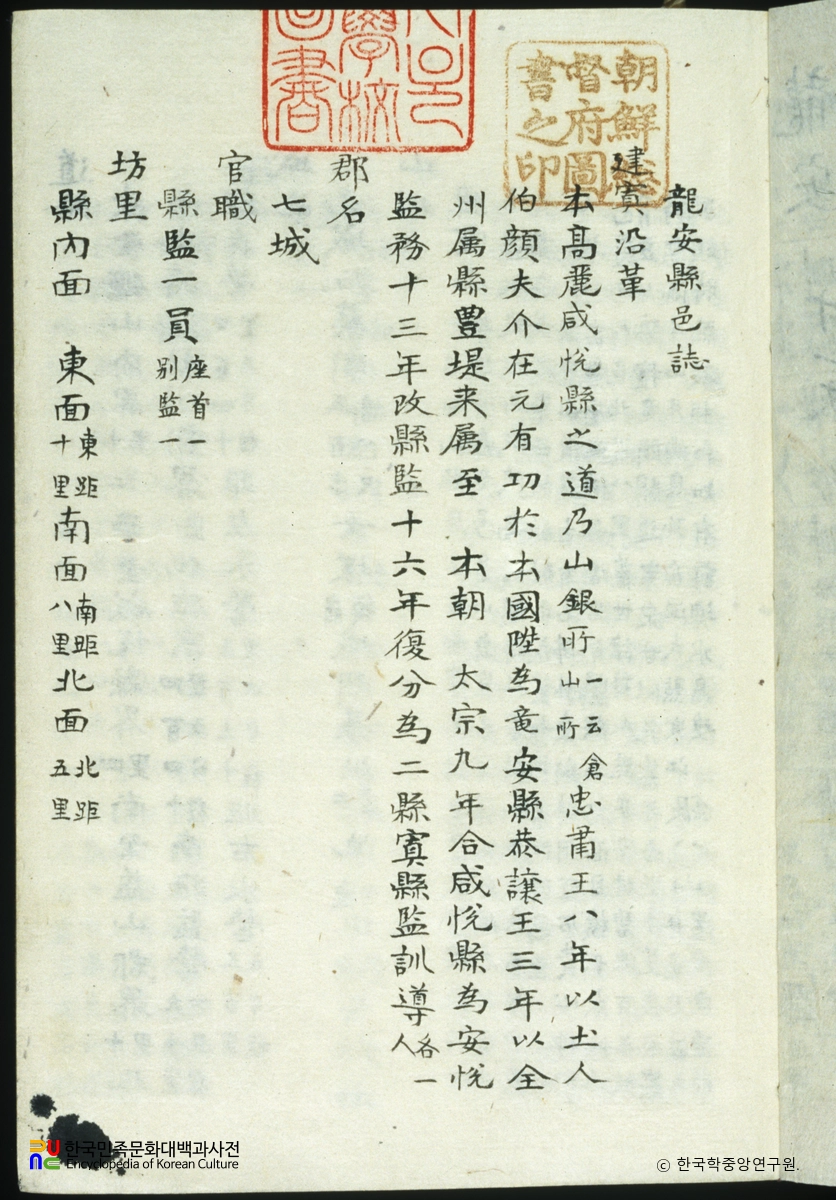 龍安縣邑誌
建寘沿革
本高麗咸悅縣之道乃山銀所一云倉山所忠肅王八年以土人
伯顔夫介在元有功於本國陞為竜安縣恭讓王三年以全
州属縣豊堤来属至 本朝 太宗九年合咸悅縣為安悅
監務十三年改縣監十六年復分為二縣寘縣監訓導各一人
郡名
七城
官職
縣監一員座首一别監一
坊里
縣内面 東面東距十里南面南距八里北面北距五里
朝鮮總
督府圖
書之印
學校
圖書
한국민족문화대백과사전
Encyclopedia of Korean Culture
© 한국학중앙연구원.